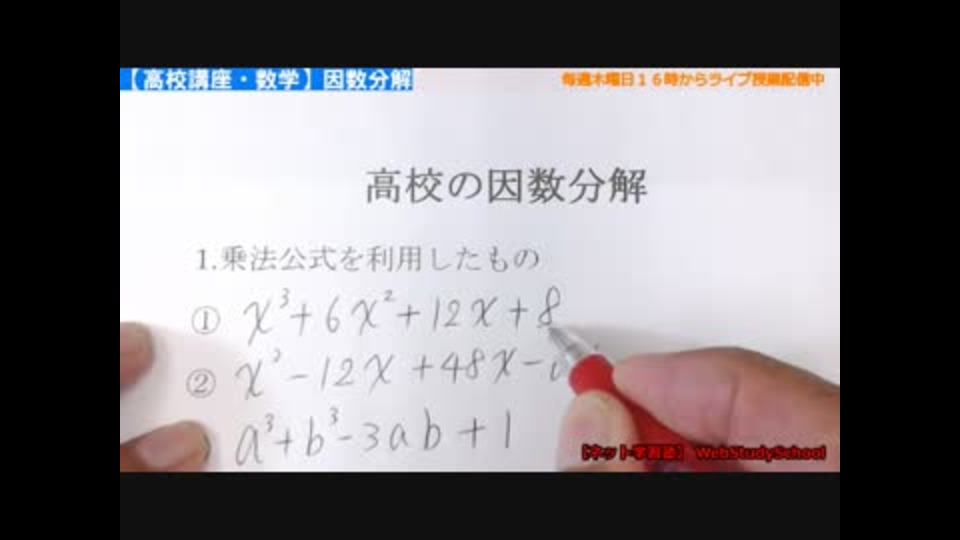 【高校講座・数学】因数分解
毎週木曜日16時からライブ授業配信中
高校の因数分解
1.乗法公式を利用したもの
① x³+6x²+12x+8
② x³-12x+48x-
a³+b³-3ab+1
【ネット学習塾】 WebStudySchool